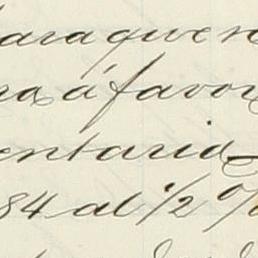 para que se
ra á favor
entaria
84 al 1/2 %